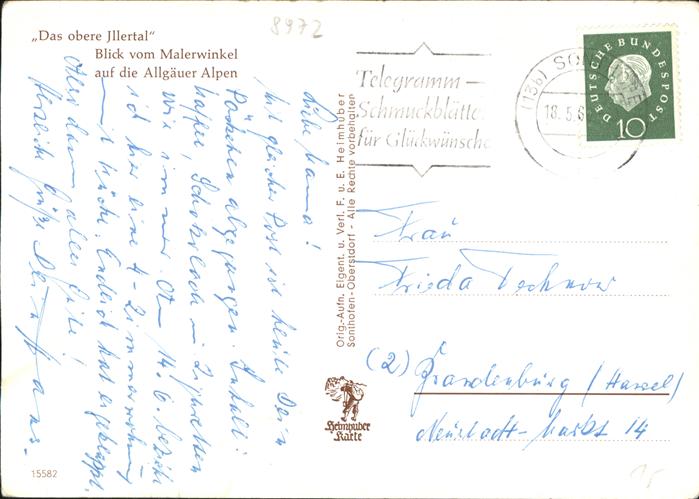 8972
„Das obere Jllertal“
Blick vom Malerwinkel
auf die Allgäuer Alpen
Liebe Mama!
Mit gleicher Post ist heute Dein
Päckchen abgegangen. Inhalt:
Kaffee, Schokolade u. Zigaretten
wie immer. Am 14.6. beziehe
ich hier eine 4-Zimmerwohnung
mit Küche. Endlich hat es geklappt.
Alles dann aller Eile!
Herzliche Grüße Dein Hans.
Orig.-Aufn. Eigent. u. Verl. F. u. E. Heimhuber
Sonthofen-Oberstdorf - Alle Rechte vorbehalten
Telegramm-
Schmuckblätte
für Glückwünsche
(13b) SO
18.5.6
DEUTSCHE BUNDESPOST
10
Frau
Frieda
(2) Brandenburg / (Havel)
Neustadt-Markt 14
Heimhuber
Karte
15582